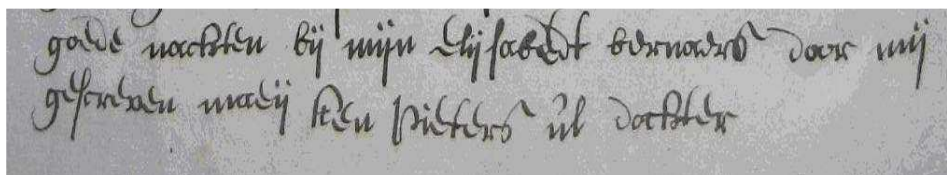 goede nackten bij mijn Elijsabedt bernaers door mij
gescreven maeij ken Pieters ul dockter